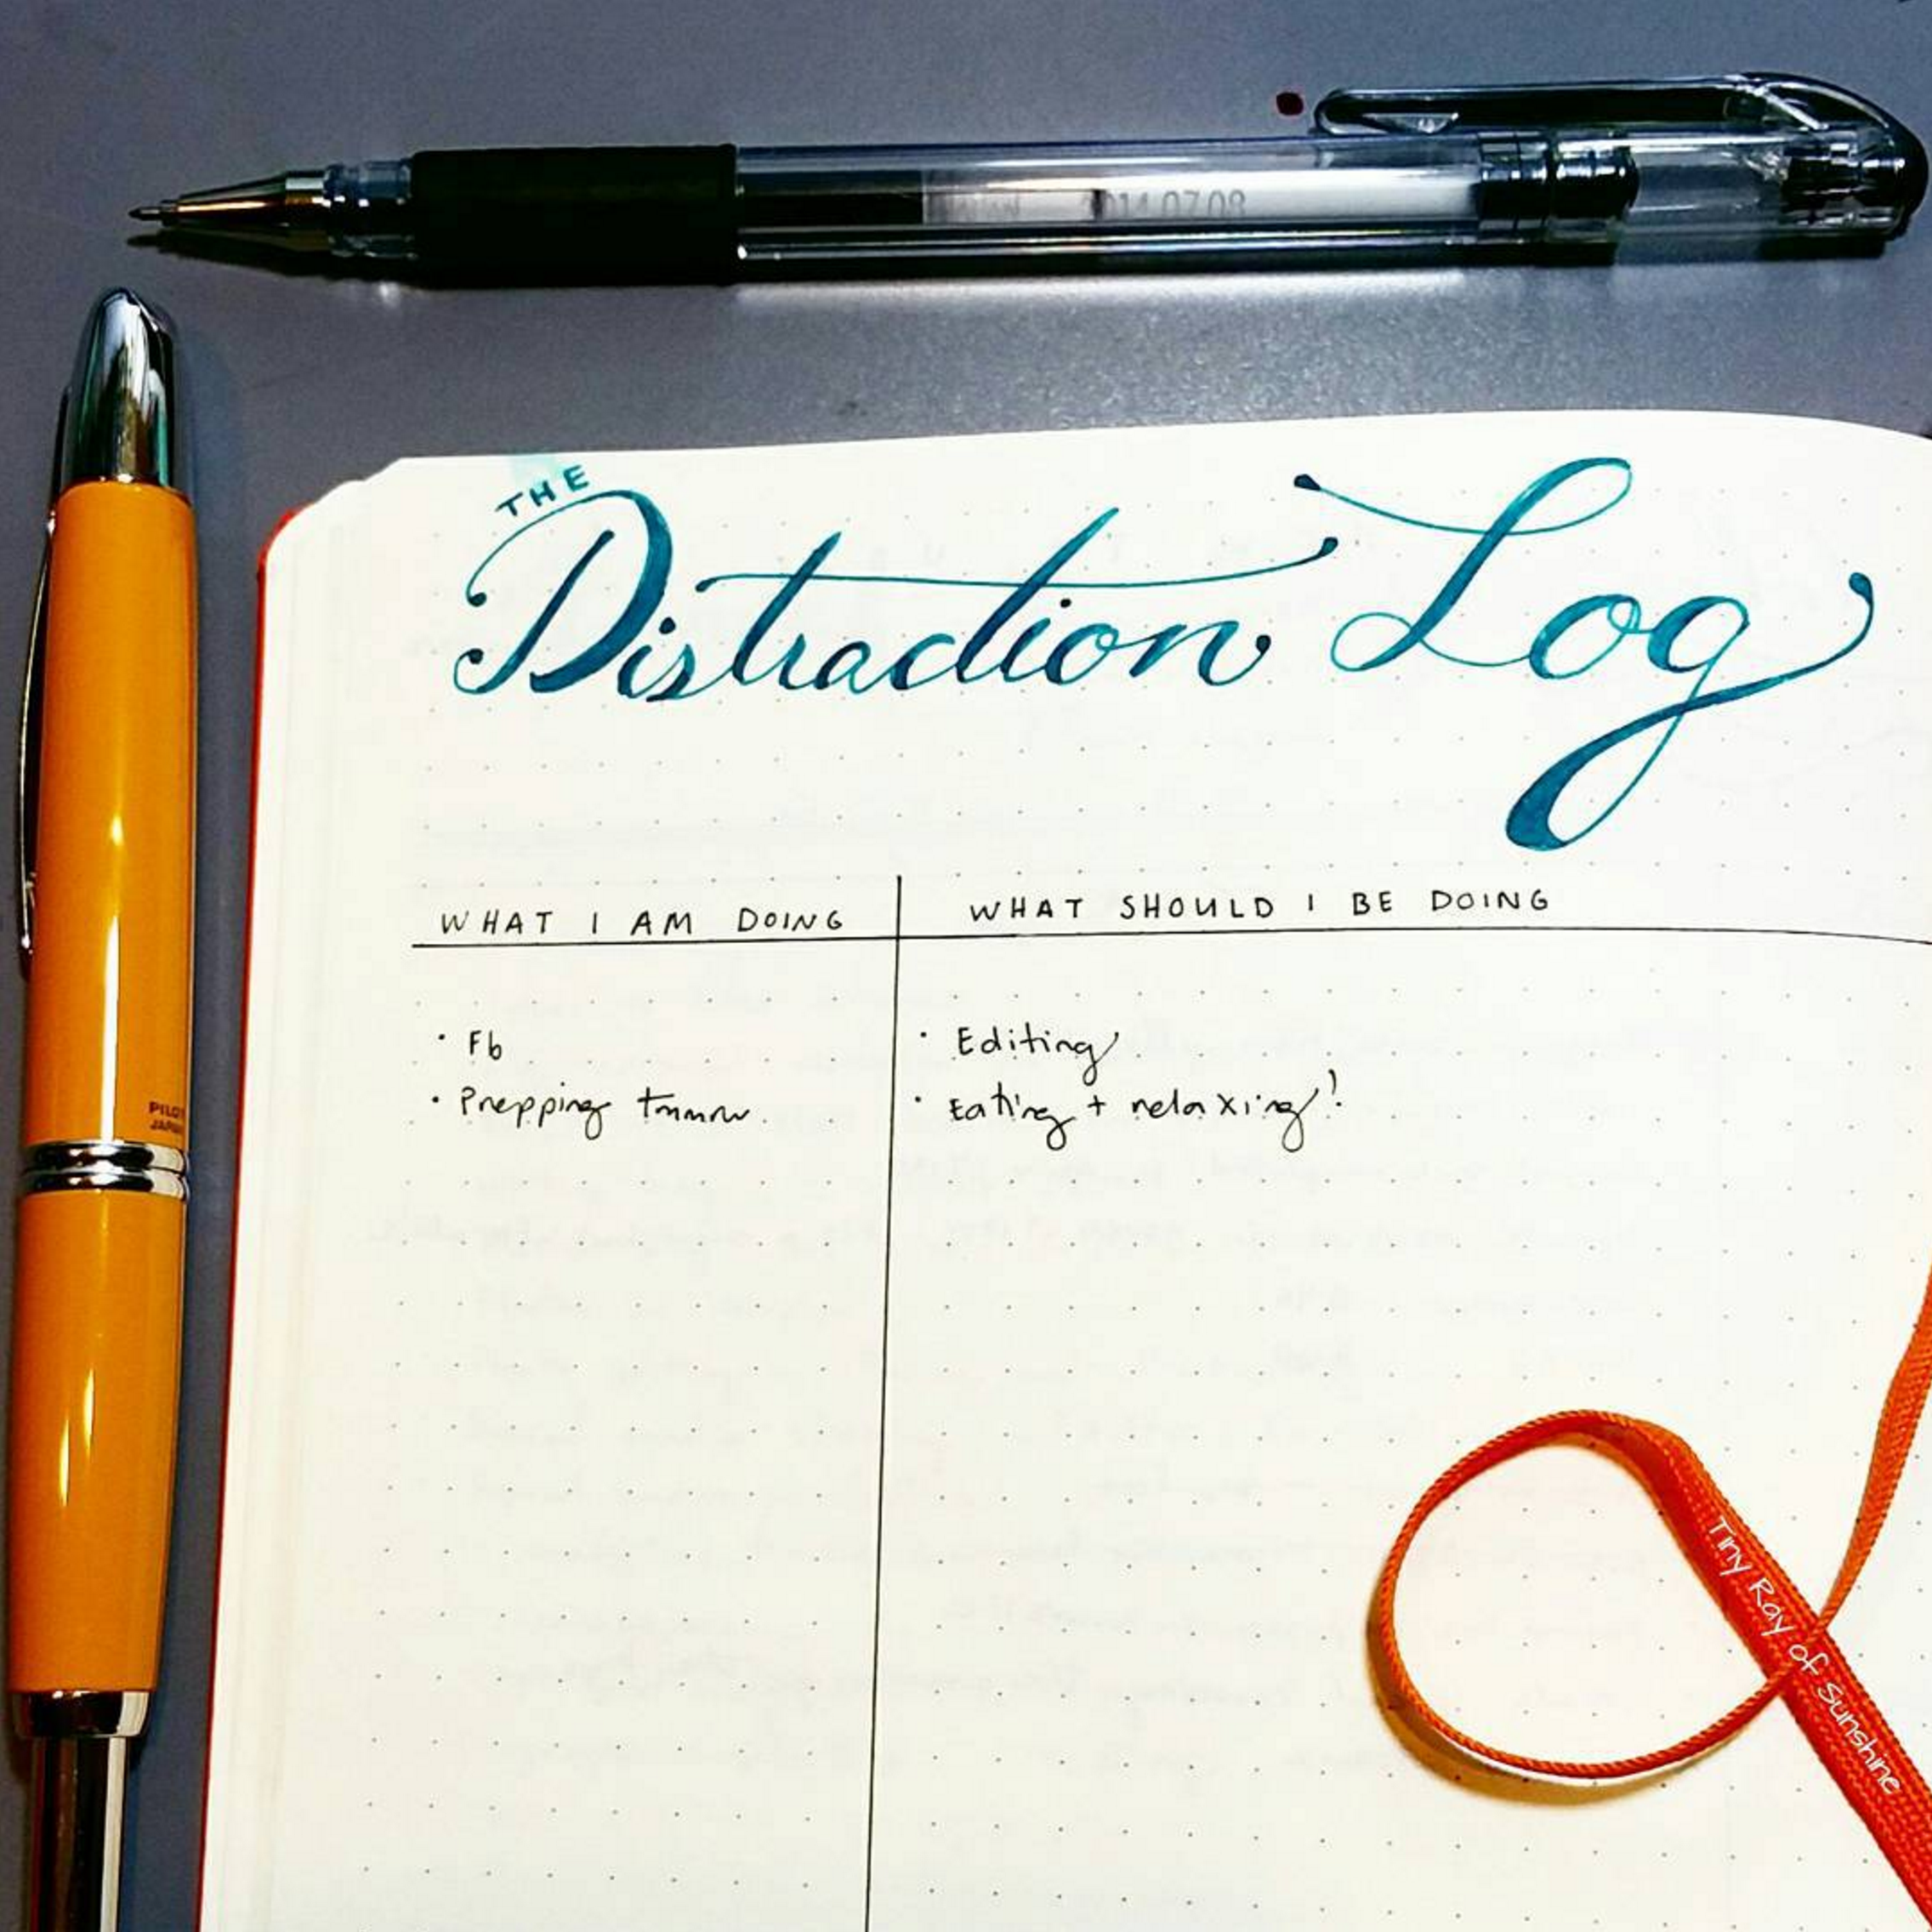 2014.07.08
THE
Distraction Log
WHAT I AM DOING
WHAT SHOULD I BE DOING
· Fb
· Editing
· Prepping tmmrw.
· Eating + relaxing!
PILOT
JAPAN
Tiny Ray of Sunshine